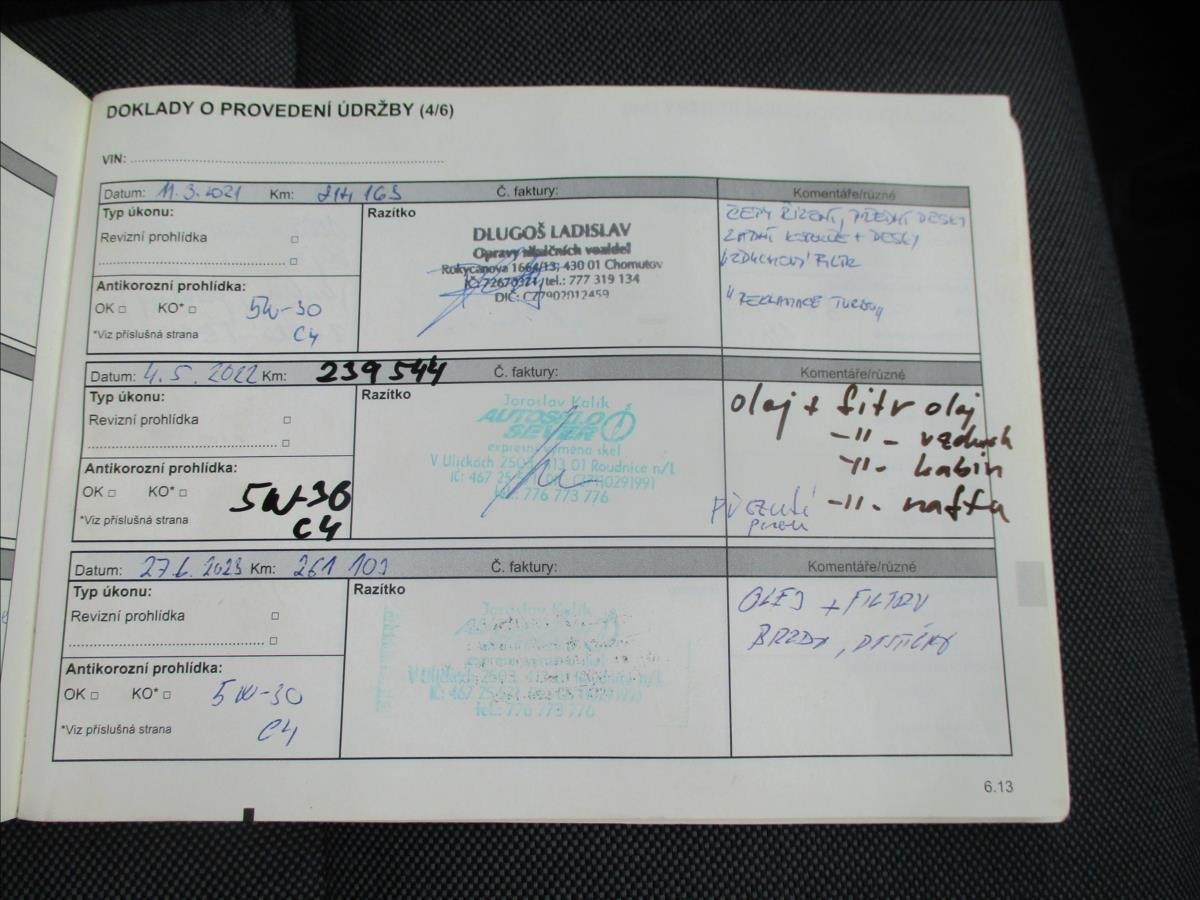 DOKLADY O PROVEDENÍ ÚDRŽBY (4/6)
VIN:
Datum: 11.3.2021 Km: 214 165 Č. faktury: Komentáře/různé
Typ úkonu: Razítko
Revizní prohlídka
Antikorozní prohlídka:
OK KO* 5W-30
*Viz příslušná strana C4
DLUGOŠ LADISLAV
Opravy silničních vozidel
Rokycanova 1664/13, 430 01 Chomutov
IČ: 72670321 tel.: 777 319 134
DIČ: CZ7902012459
ČEPY ŘÍZENÍ, PŘEDNÍ DESKY
ZADNÍ KOTOUČE + DESKY
VZDUCHOVÝ FILTR
"REKLAMACE TURBO"
Datum: 4.5.2022 Km: 239 544 Č. faktury: Komentáře/různé
Typ úkonu: Razítko
Revizní prohlídka
Antikorozní prohlídka:
OK KO* 5W-30
*Viz příslušná strana C4
Jaroslav Kalík
AUTOSKLO
SEVER
expresní výměna skel
V Uličkách 2503, 413 01 Roudnice n/L
tel.: 776 773 776
olaj + filtr olaj
-11- vzduch
-11- kabin
-11- nafta
Datum: 27.6.2023 Km: 261 103 Č. faktury: Komentáře/různé
Typ úkonu: Razítko
Revizní prohlídka
Antikorozní prohlídka:
OK KO* 5W-30
*Viz příslušná strana C4
Jaroslav Kalík
expresní výměna skel
V Uličkách 2503, 413 01 Roudnice n/L
tel.: 776 773 776
OLEJ + FILTRY
BRZDY, DESTIČKY
6.13